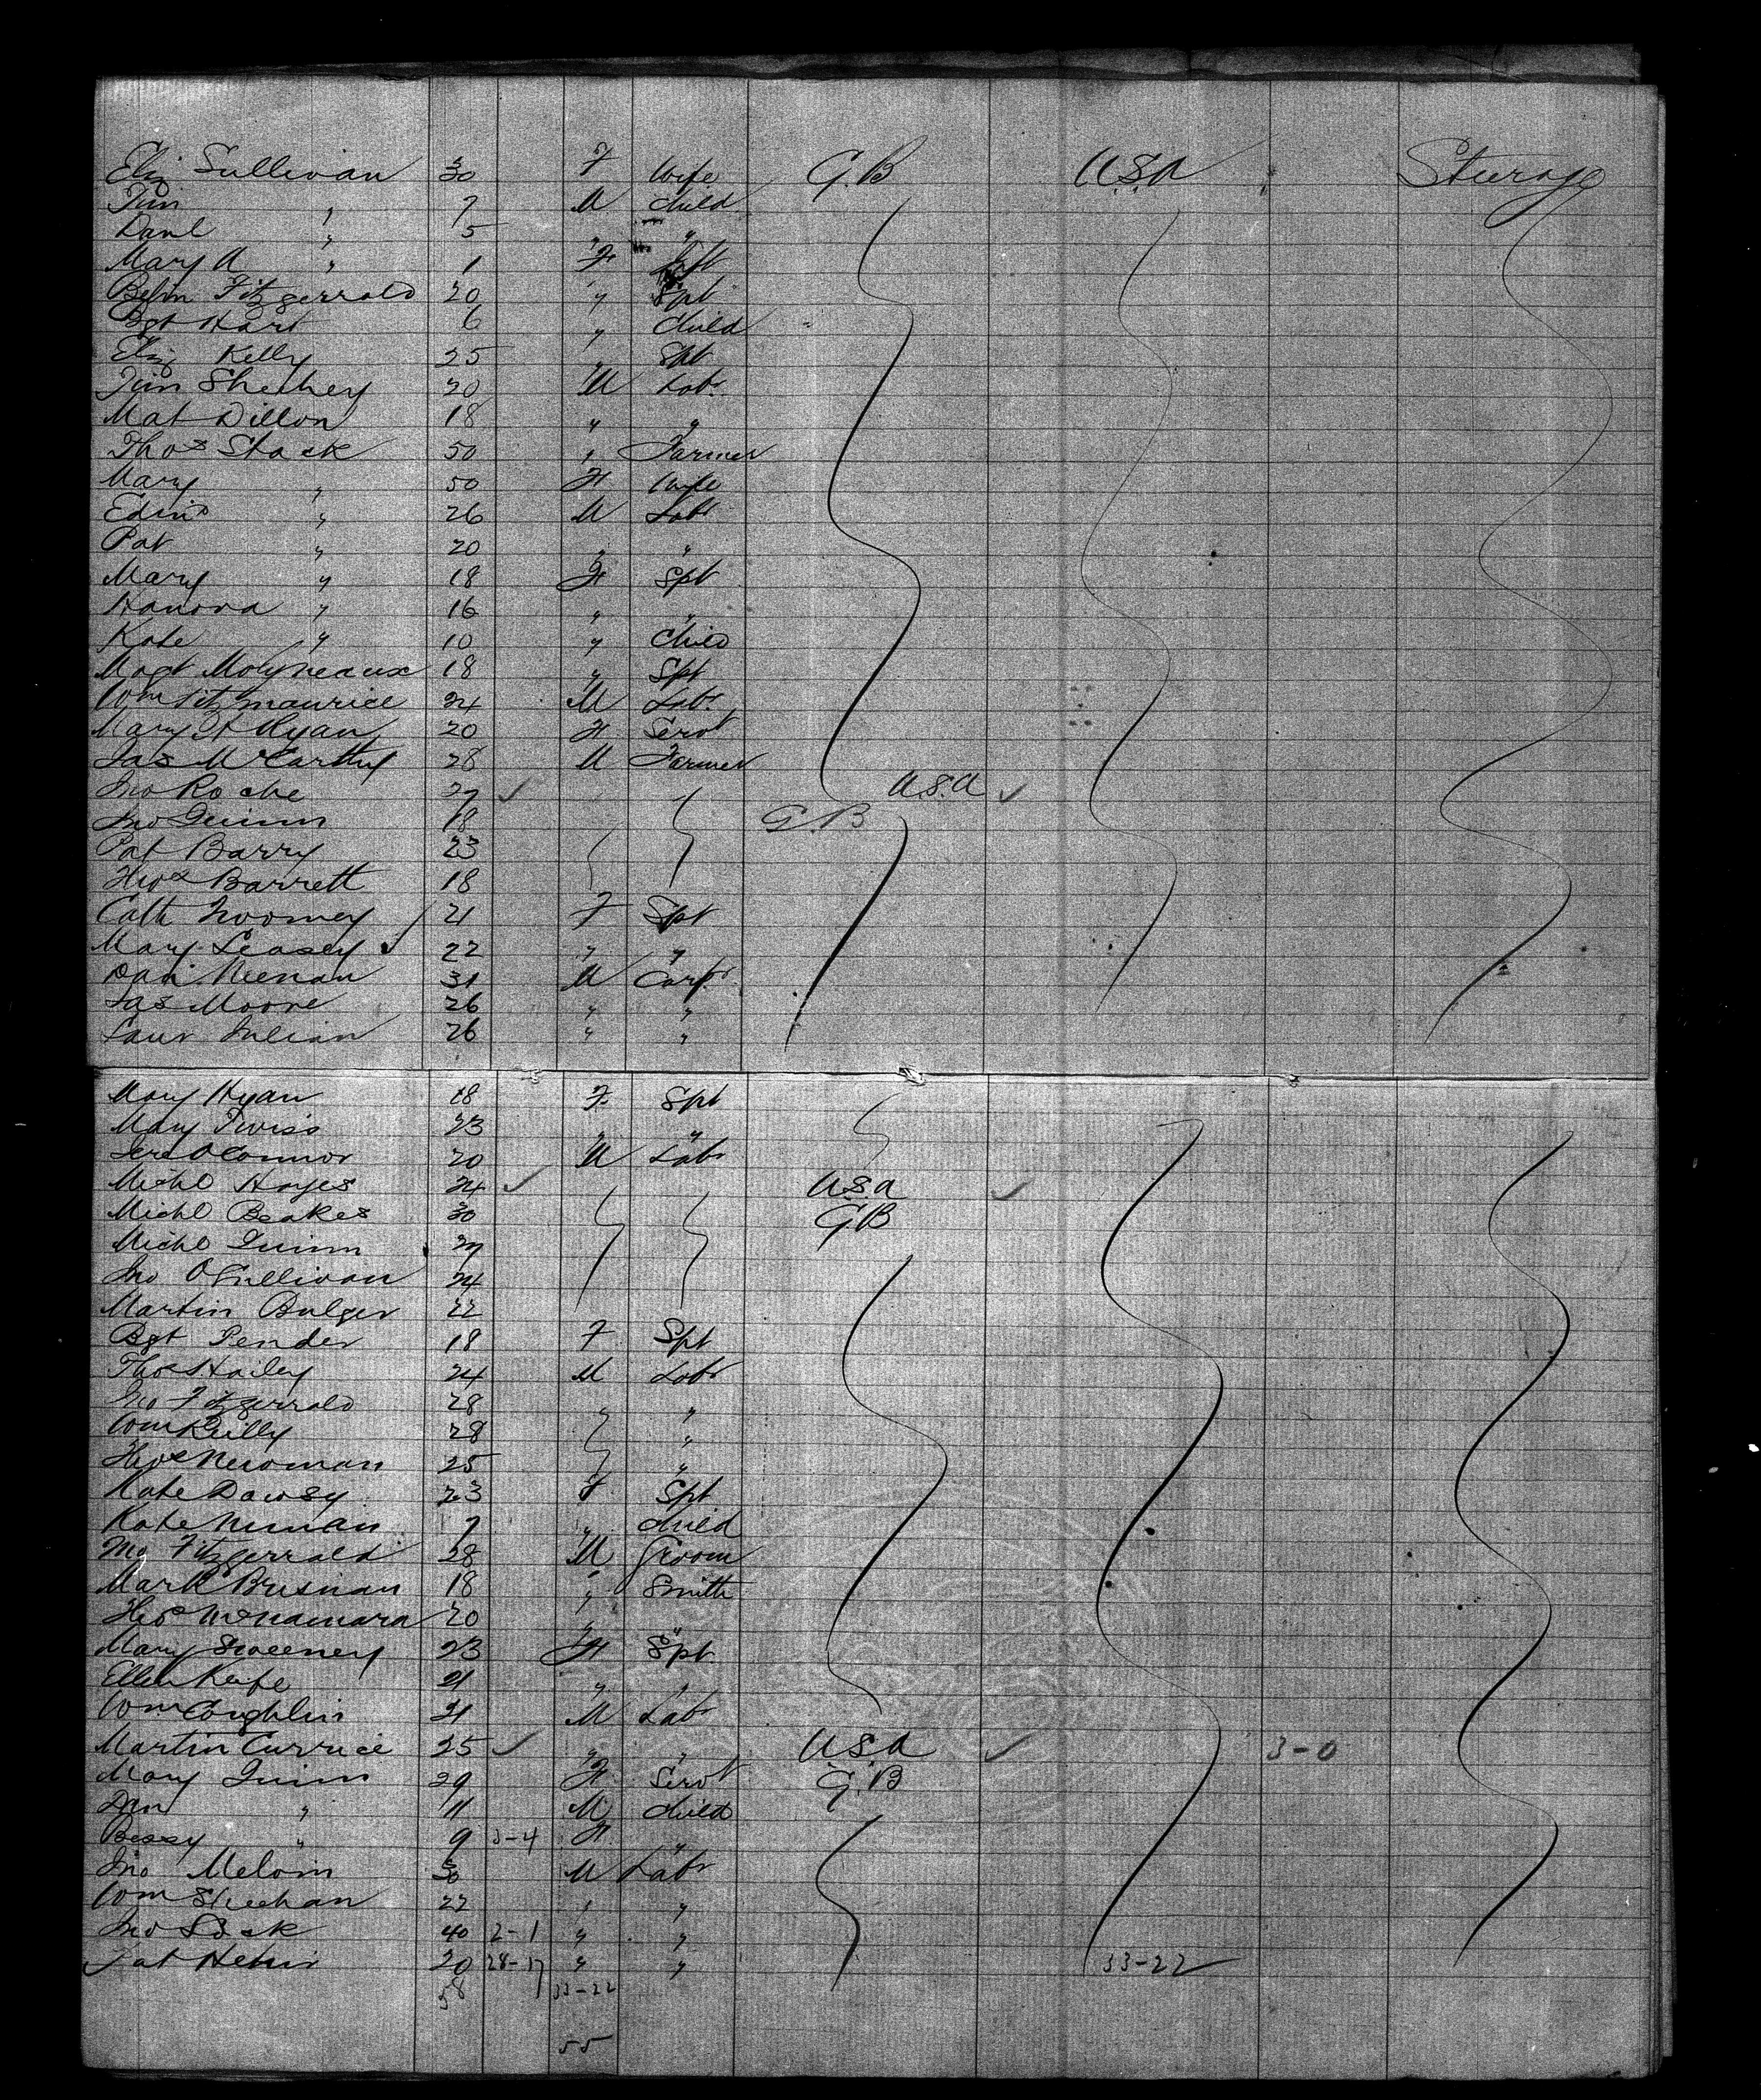 Eliz Sullivan 30 F Wife G.B U.S.A Sturage
Tim " 7 M Child
Danl " 5 " "
Mary A " 1 F
Fitzgerrald 20 " Spt
Bgt Hart 6 " Child
Eliz Kelly 25 " Spt
Jim Sheehey 20 M Labr
Mat Dillon 18 " "
Thos Stack 50 " Farmer
Mary " 50 F Wife
Edmd " 26 M Labr
Pat " 20 " "
Mary " 18 F Spt
Hanora " 16 " "
Kate " 10 " Child
Magt Molyneaux 18 " Spt
Wm Fitzmaurice 24 M Labr
Mary Ryan 20 F Servt
Jas McCarthy 28 M Farmer
Jno Roche 27 ✓ U.S.A ✓
Jno Quinn 18 G.B
Pat Barry 23
Thos Barrett 18
Cath Twomey 21 F Spt
Mary Leasey 22 " "
Dan Neenan 31 M Carpr
Jas Moore 26 " "
Laur 26 " "
Mary Ryan 18 F Spt
Mary Twiss 23 " "
Jere OConnor 20 M Labr
Michl Hayes 24 ✓ U.S.A ✓
Michl Beakes 30 G.B
Michl Quinn 27
Jno OSullivan 24
Martin Bulger 22
Bgt Pender 18 F Spt
Thos Hailey 24 M Labr
Jno Fitzgerrald 28 " "
Wm Reilly 28 "
Thos Newman 25 "
Kate Dawsy 23 F Spt
Kate 7 " Child
Jno Fitzgerrald 28 M Groom
Mark Brisnan 18 " Smith
Thos McNamara 20 " "
Mary Sweeney 23 F Spt
Ellen Keefe 21 " "
Wm Coughlin 21 M Labr
Martin Currice 25 ✓ " " U.S.A ✓ 3-0
Mary Quinn 29 F Servt G.B
Dan " 11 M Child
Bessy " 9 3-4 F "
Jno Melvin 30 M Labr
Wm Sheehan 22 " "
Jno 40 2-1 " "
Pat 20 28-17 " " 33-22
58 33-22
55